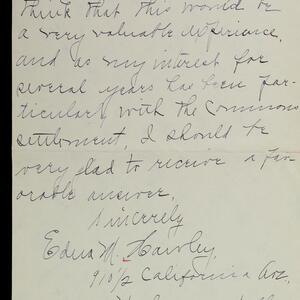 think that this would be
a very valuable experience,
and as my interest for
several years has been par-
ticularly with the Commons
settlement, I should be
very glad to receive a fav-
orable answer.
Sincerely
Edna M. Hawley.
910½ California Ave.